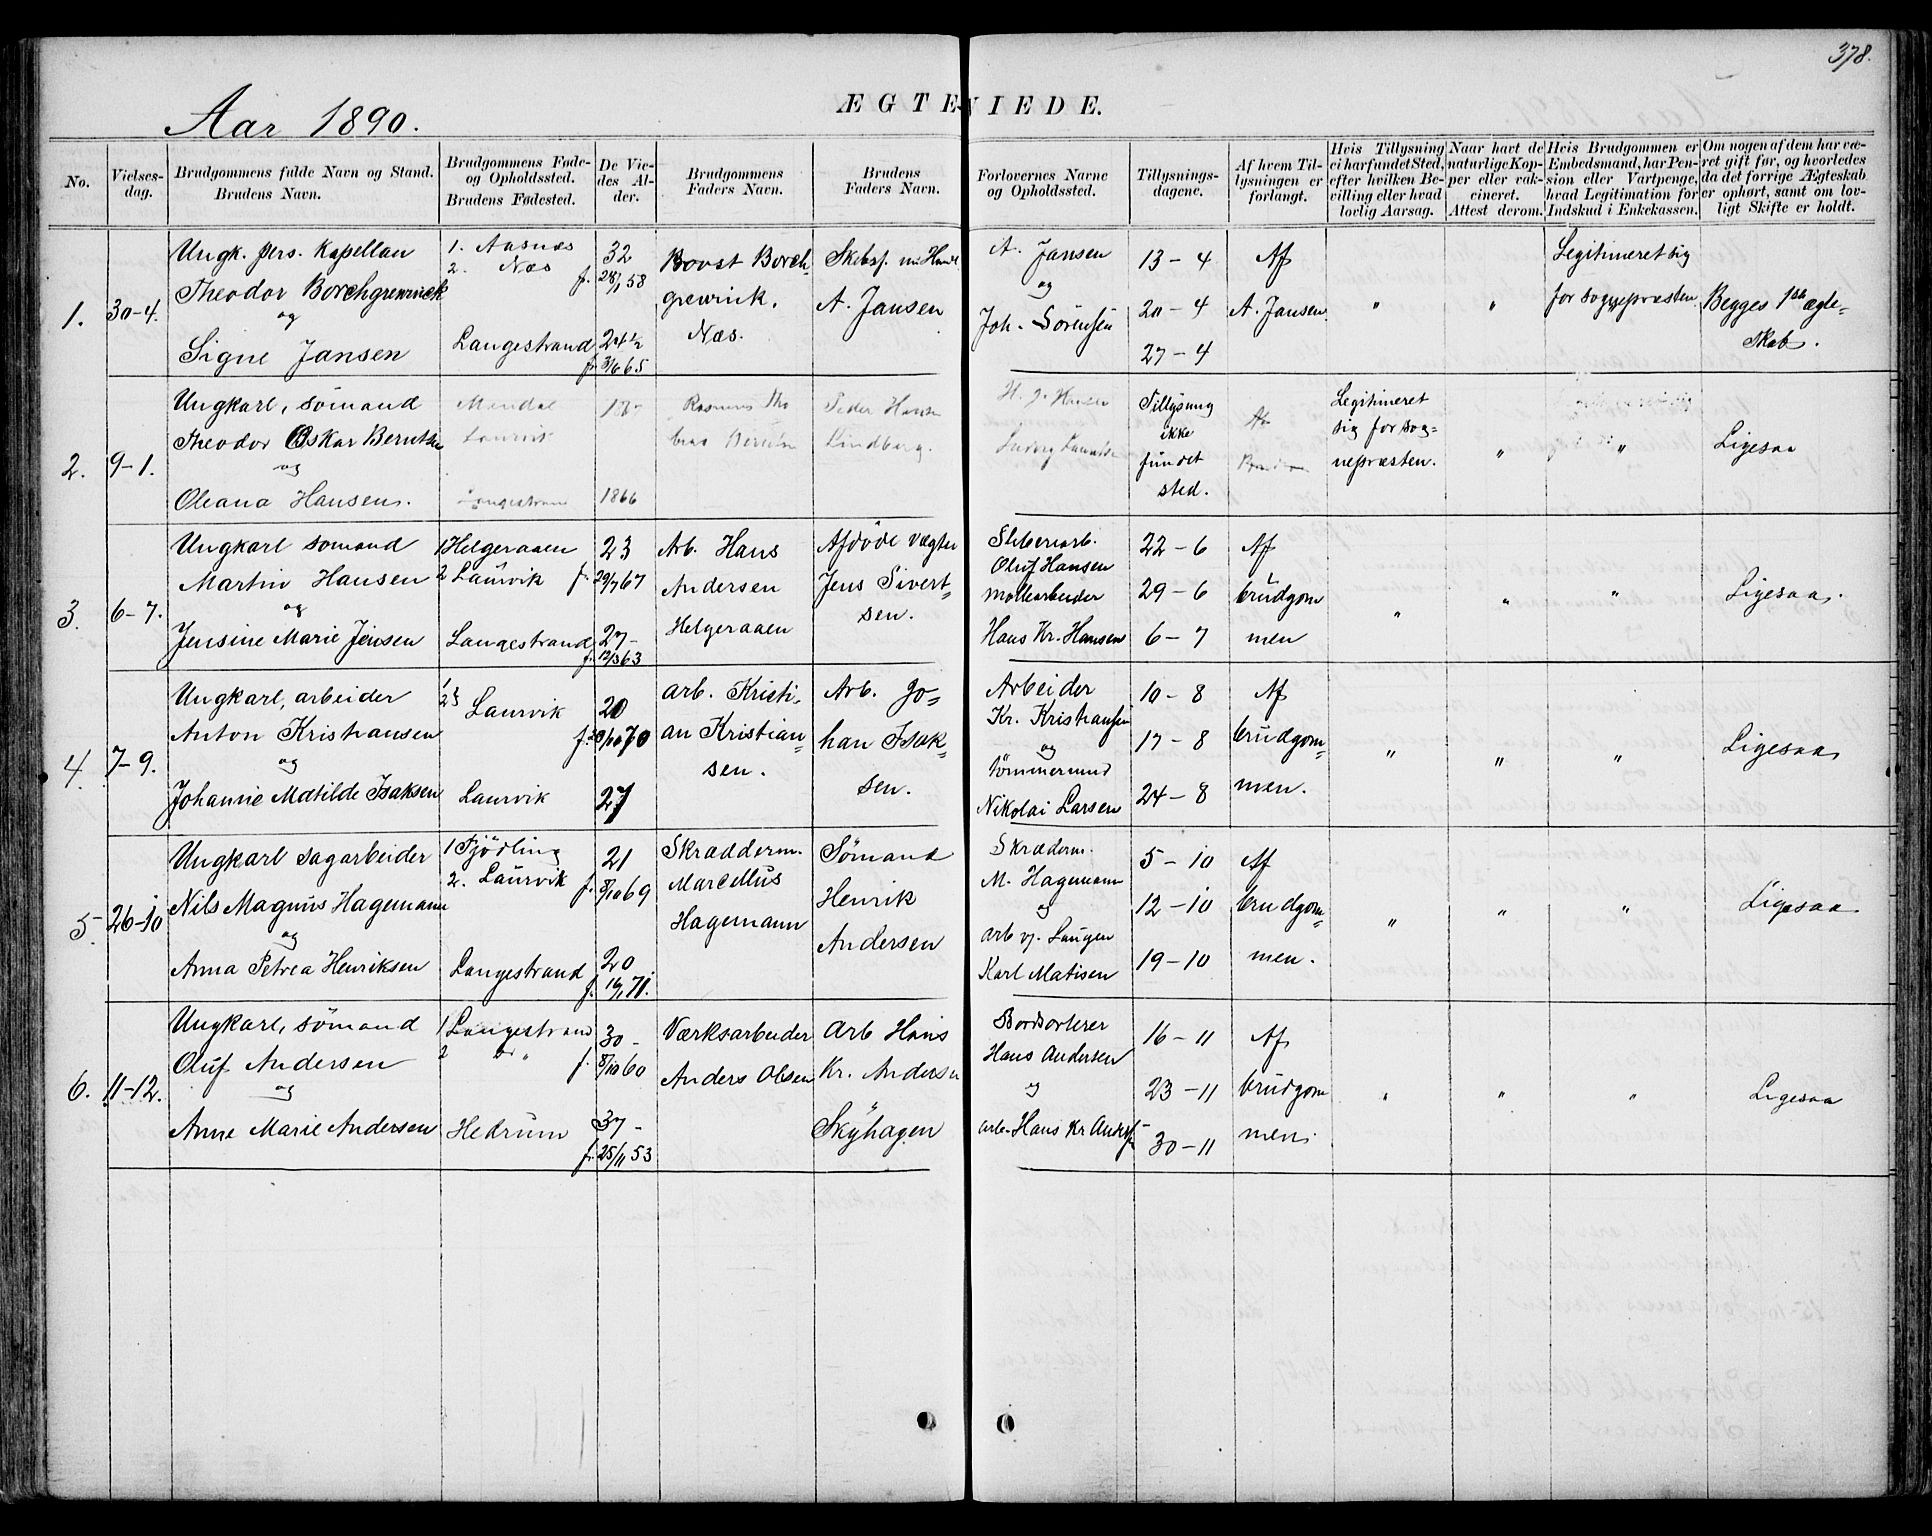 378.
Aar 1890.
ÆGTEVIEDE.
No.
Vielses-
dag.
Brudgommens fulde Navn og Stand.
Brudens Navn.
Brudgommens Føde-
og Opholdssted.
Brudens Fødested.
De Vie-
des Al-
der.
Brudgommens
Faders Navn.
Brudens
Faders Navn.
Forlovernes Navne
og Opholdssted.
Tillysnings-
dagene.
Af hvem Til-
lysningen er
forlangt.
Hvis Tillysning
ei har fundet Sted,
efter hvilken Be-
villing eller hvad
lovlig Aarsag.
Naar havt de
naturlige Kop-
per eller vak-
cineret.
Attest derom.
Hvis Brudgommen er
Embedsmand, har Pen-
sion eller Vartpenge,
hvad Legitimation for
Indskud i Enkekassen.
Om nogen af dem har væ-
ret gift før, og hvorledes
da det forrige Ægteskab
er ophørt, samt om lov-
ligt Skifte er holdt.
1.
30-4.
Ungk. pers. Kapellan
Theodor Borchgrewinck
og
Signe Jansen
1. Aasnæs
2. Næs
Langestrand
32
f. 28/1 58
24 1/2
f. 3/6 65
Borch-
grewink.
Næs.
A. Jansen
A. Jansen
og
Joh. Sörensen
13-4
20-4
27-4
Af
A. Jansen.
"
"
Legitimeret sig
for sognepræsten
Begges 1ste ægte-
skab.
2.
9-1.
Ungkarl, sömand
Theodor Oskar Berntsen
og
Oleana Hansen.
Mandal
Laurvik
Langestrand
1866
Peder Hansen
Lindberg.
Tillysning
ikke
fundet
sted.
Af
Legitimeret
sig for sog-
nepræsten.
"
"
Ligesaa
3.
6-7.
Ungkarl sömand
Martin Hansen
og
Jensine Marie Jensen
1 Helgeraaen
2 Laurvik
Langestrand
23
f. 29/7 67
27-
f. 12/3 63
Arb. Hans
Andersen
Helgeraaen
Afdöde vægter
Jens Sivert-
sen.
Sliberiarb.
Oluf Hansen
möllearbeider
Hans Kr. Hansen
22-6
29-6
6-7
Af
brudgom
men
"
"
"
Ligesaa.
4.
7-9.
Ungkarl, arbeider
Anton Kristiansen
og
Johanne Matilde Isaksen
1
2 } Laurvik
Laurvik
20
70
27
arb. Kristi-
an Kristian-
sen.
Arb. Jo-
han Isak-
sen.
Arbeider
Kr. Kristiansen
og
tömmermand
Nikolai Larsen
10-8
17-8
24-8
Af
brudgom-
men.
"
"
"
Ligesaa
5.
26-10
Ungkarl sagarbeider
Nils Magnus Hagemann
og
Anna Petrea Henriksen
1 Tjödling
2. Laurvik
Langestrand
21
f. 8/10 69
20
f. 16/1 71.
Skrædderm.
Marcellus
Hagemann
Sömand
Henrik
Andersen
Skræderm.
M. Hagemann
og
arb v. Laugen
Karl Matisen
5-10
12-10
19-10
Af
brudgom-
men.
"
"
"
Ligesaa
6.
11-12.
Ungkarl, sömand
Oluf Andersen
og
Anne Marie Andersen
1 Langestrand
2 "
Hedrum
30-
f. 8/10 60
37-
f. 25/11 53
Værksarbeider
Anders Olsen
Arb Hans
Kr. Andersen
Skyhagen
Bordsorterer
Hans Andersen
og
arb. Hans Kr Anders
16-11
23-11
30-11
Af
brudgom
men.
"
"
"
Ligesaa